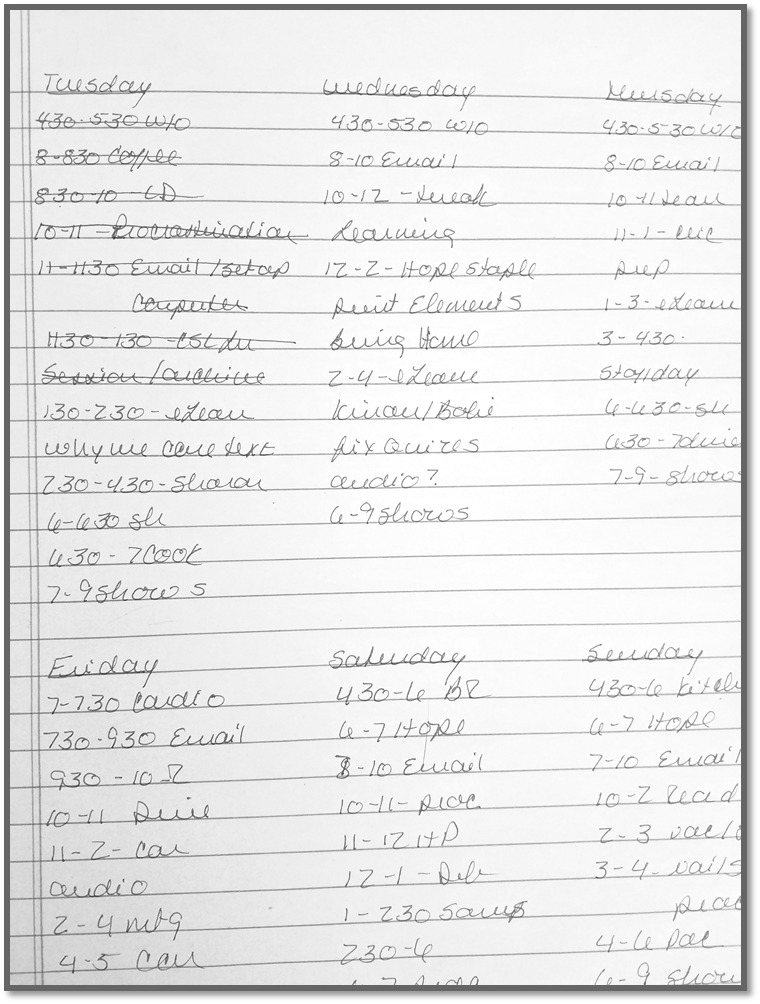 Tuesday
430-530 W/O
8-830 Coffee
830-10 LD
10-11 - Procrastination
11-1130 Email / setup
computer
1130-130
Session / archive
130-230- eLearn
why we care text
230-430- Sharon
6-630 sh
630-7 cook
7-9 shows
Wednesday
430-530 W/O
8-10 Email
10-12 - sneak
Learning
12-2- Hope Staple
print Elements
being Home
2-4- eLearn
fix Quizes
audio?
6-9 shows
Thursday
430-530 W/O
8-10 Email
10-11 Lean
11-1-
prep
1-3- eLearn
3-430-
Stay/day
6-630- sh
630-7 dine
7-9- shows
Friday
7-730 Cardio
730-930 Email
930-10
10-11 Drive
11-2- Car
audio
2-4 mtg
4-5 Car
Saturday
430-6 BR
6-7 Hope
8-10 Email
10-11- proc
11-12 HP
12-1-
1-230
230-6
Sunday
430-6 kitch
6-7 Hope
7-10 Email
10-2 Read
2-3 vac/
3-4- nails
4-6
6-9 show